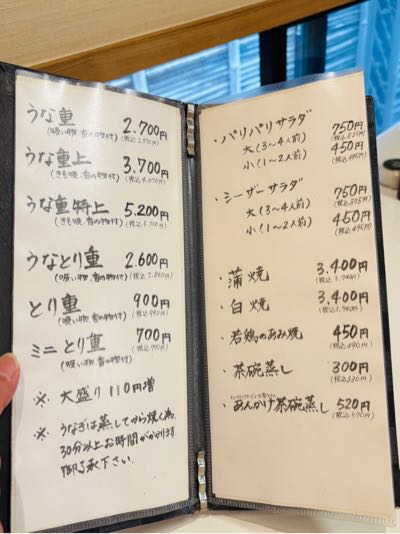 うな重 2.700円
(吸い物、香の物付) (税込2.970円)
うな重上 3.700円
(きも吸、香の物付) (税込4.070円)
うな重特上 5.200円
(きも吸、香の物付) (税込5.720円)
うなとり重 2.600円
(吸い物、香の物付) (税込2.860円)
とり重 900円
(吸い物、香の物付) (税込990円)
ミニとり重 700円
(吸い物、香の物付) (税込770円)
※ 大盛り110円増
※ うなぎは蒸してから焼く為、
30分以上お時間がかかります
御了承下さい。
・パリパリサラダ
大(3〜4人前) 750円
(税込825円)
小(1〜2人前) 450円
(税込495円)
・シーザーサラダ
大(3〜4人前) 750円
(税込825円)
小(1〜2人前) 450円
(税込495円)
・蒲焼 3.400円
(税込3.740円)
・白焼 3.400円
(税込3.740円)
・若鶏のあみ焼 450円
(税込490円)
・茶碗蒸し 300円
(税込330円)
・あんかけ茶碗蒸し 520円
(税込570円)